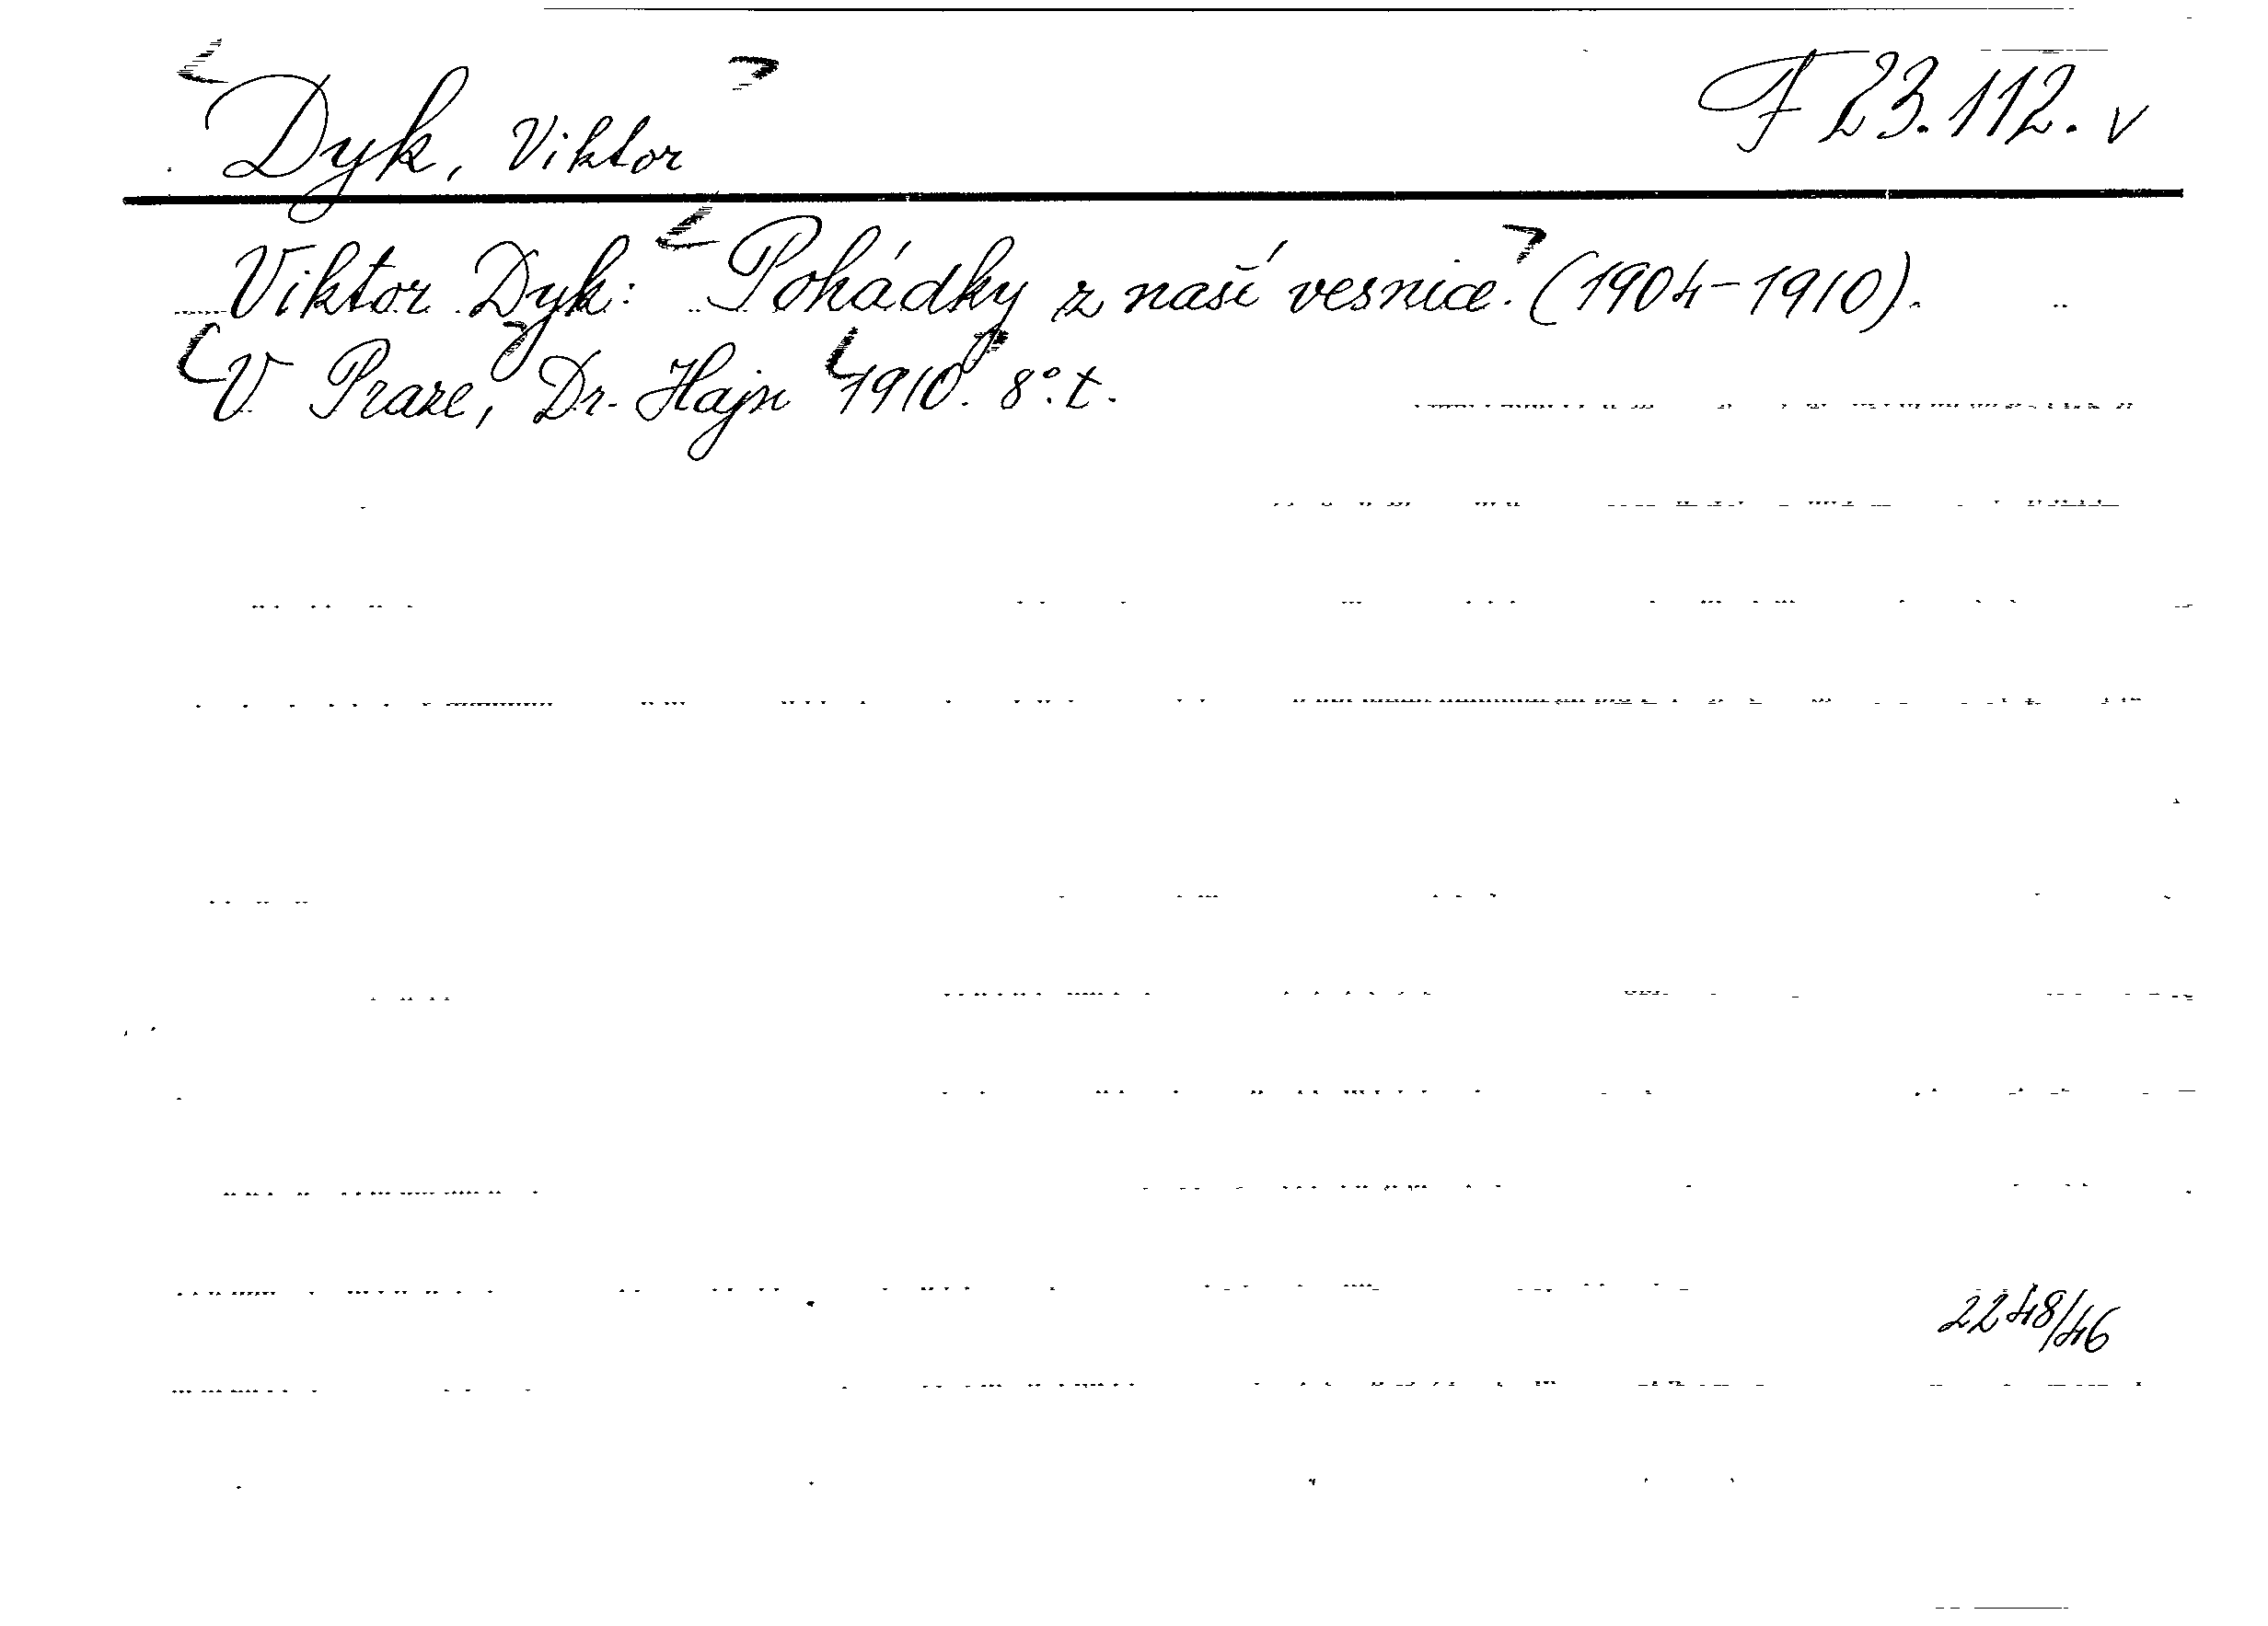 Dyk, Viktor F 23.112. v
Viktor Dyk: Pohádky z naší vesnice. (1904-1910).
V Praze, Dr. Hajn 1910. 8°. t.
2248/46